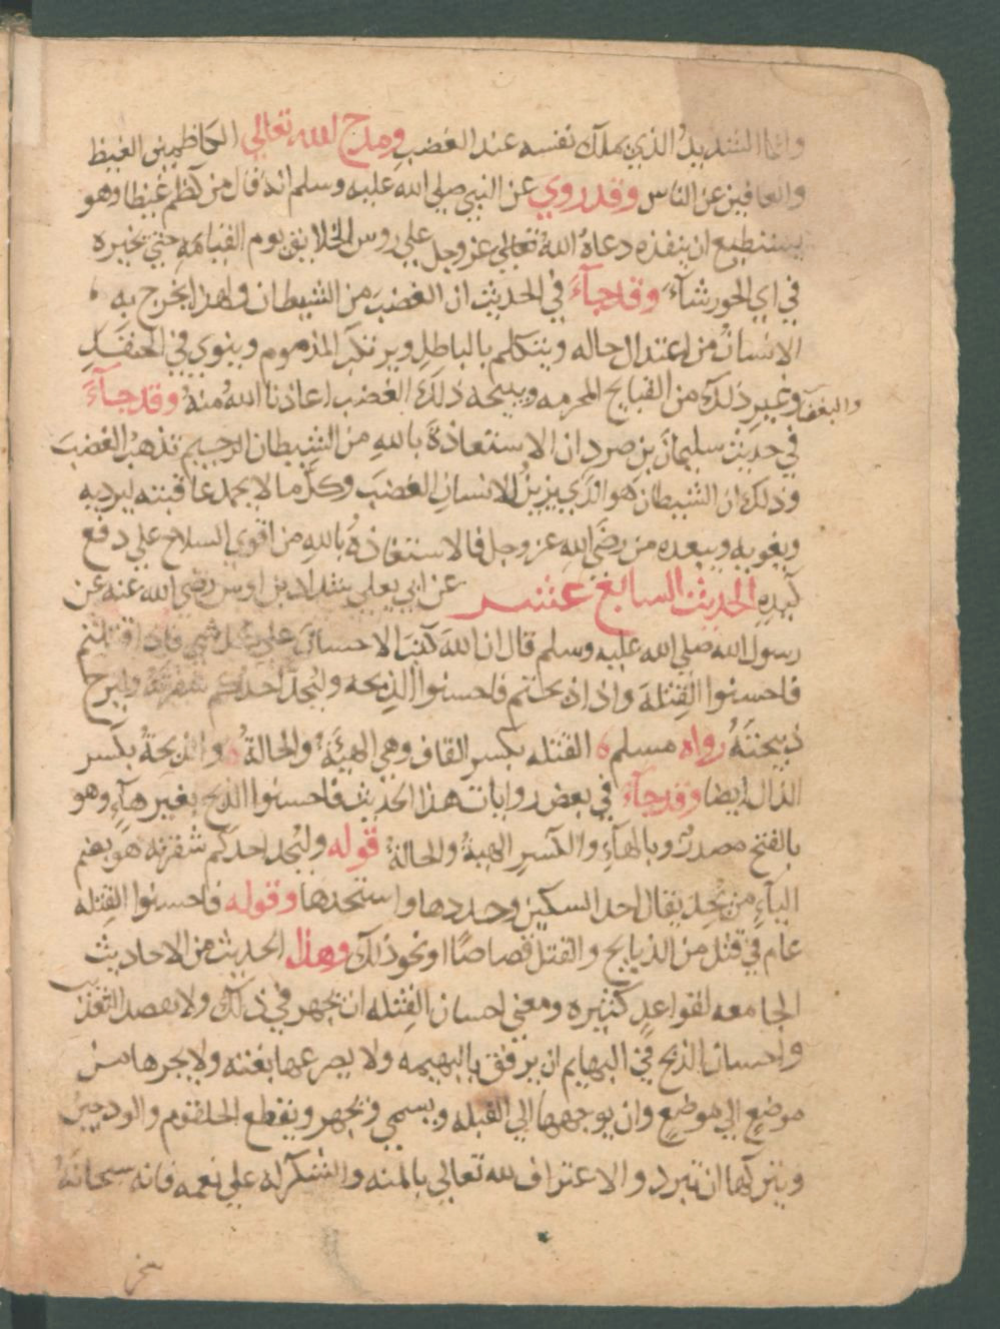 وانما الشديد الذي يملك نفسه عند الغضب ومدح الله تعالي الكاظمين الغيظ
والعافين عن الناس وقد روي عن النبي صلي الله عليه وسلم انه قال من كظم غيظا وهو
يستطيع ان ينفذه دعاه الله تعالي عز وجل علي روس الخلايق يوم القيامه حتي يخيره
في اي الحور شآء وقد جآء في الحديث ان الغضب من الشيطان ولهذا يخرج به
الانسان من اعتدال حاله ويتكلم بالباطل ويرتكب المذموم وينوي في الحقد
والبغض وغير ذلك من القبايح المحرمه ويبيحه ذلك الغضب اعاذنا الله منه وقد جآء
في حديث سليمان بن صرد ان الاستعاذة بالله من الشيطان الرجيم تذهب الغضب
وذلك ان الشيطان هو الذي يزين للانسان الغضب وكل ما لا يحمد عاقبته ليرديه
ويغويه ويبعده من رضي الله عز وجل فالاستعاذة بالله من اقوي السلاح علي دفع
كيده الحديث السابع عشر عن ابي يعلي شداد بن اوس رضي الله عنه عن
رسول الله صلي الله عليه وسلم قال ان الله كتب الاحسان علي كل شي فاذا قتلتم
فاحسنوا القتلة واذا ذبحتم فاحسنوا الذبحه وليحد احدكم شفرته وليرح
ذبيحته رواه مسلم ه القتله بكسر القاف وهي الهيئة والحالة ه والذبحة بكسر
الذال ايضا وقد جآء في بعض روايات هذا الحديث فاحسنوا الذبح بغير هآء وهو
بالفتح مصدر وبالهآء والكسر الهية والحالة قوله وليحد احدكم شفرته هو بضم
اليآء من يحد يقال احد السكين وحددها واستحدها وقوله فاحسنوا القتله
عام في قتل من الذبايح والقتل قصاصا او نحو ذلك وهذا الحديث من الاحاديث
الجامعه لقواعد كثيره ومعني احسان القتله ان يجهر في ذلك ولا يقصد التعذيب
واحسان الذبح في البهايم ان يرفق بالبهيمه ولا يصرعها بغته ولا يجرها من
موضع الي موضع وان يوجهها الي القبله ويسمي ويجهر ويقطع الحلقوم والودجين
ويتركها ان تبرد والاعتراف لله تعالي بالمنه والشكر له علي نعمه فانه سبحانه